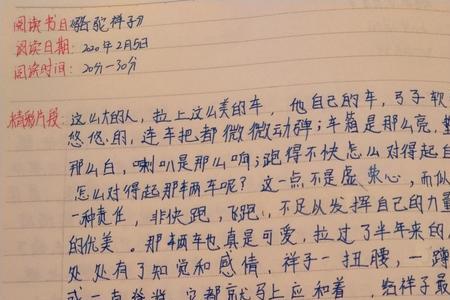 阅读书目《骆驼祥子》
阅读日期：2020年2月5日
阅读时间：20分-30分
精彩片段：这么大的人，拉上这么美的车，他自己的车，弓子软
悠悠的，连车把都微微动弹；车箱是那么亮，垫
那么白，喇叭是那么响；跑得不快怎么对得起自
怎么对得起那辆车呢？这一点不是虚荣心，而似
一种责任，非快跑，飞跑，不足以发挥自己的力量
的优美。那辆车也真是可爱，拉过了半年来的，
处处有了知觉和感情，祥子一扭腰，一蹲
或一直脊背，它都就马上应和着，给祥子最